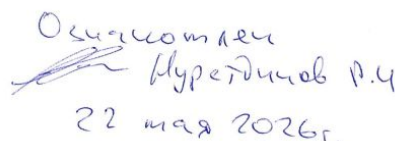 Ознакомлен
Нуретдинов Р.Ч
22 мая 2026г.